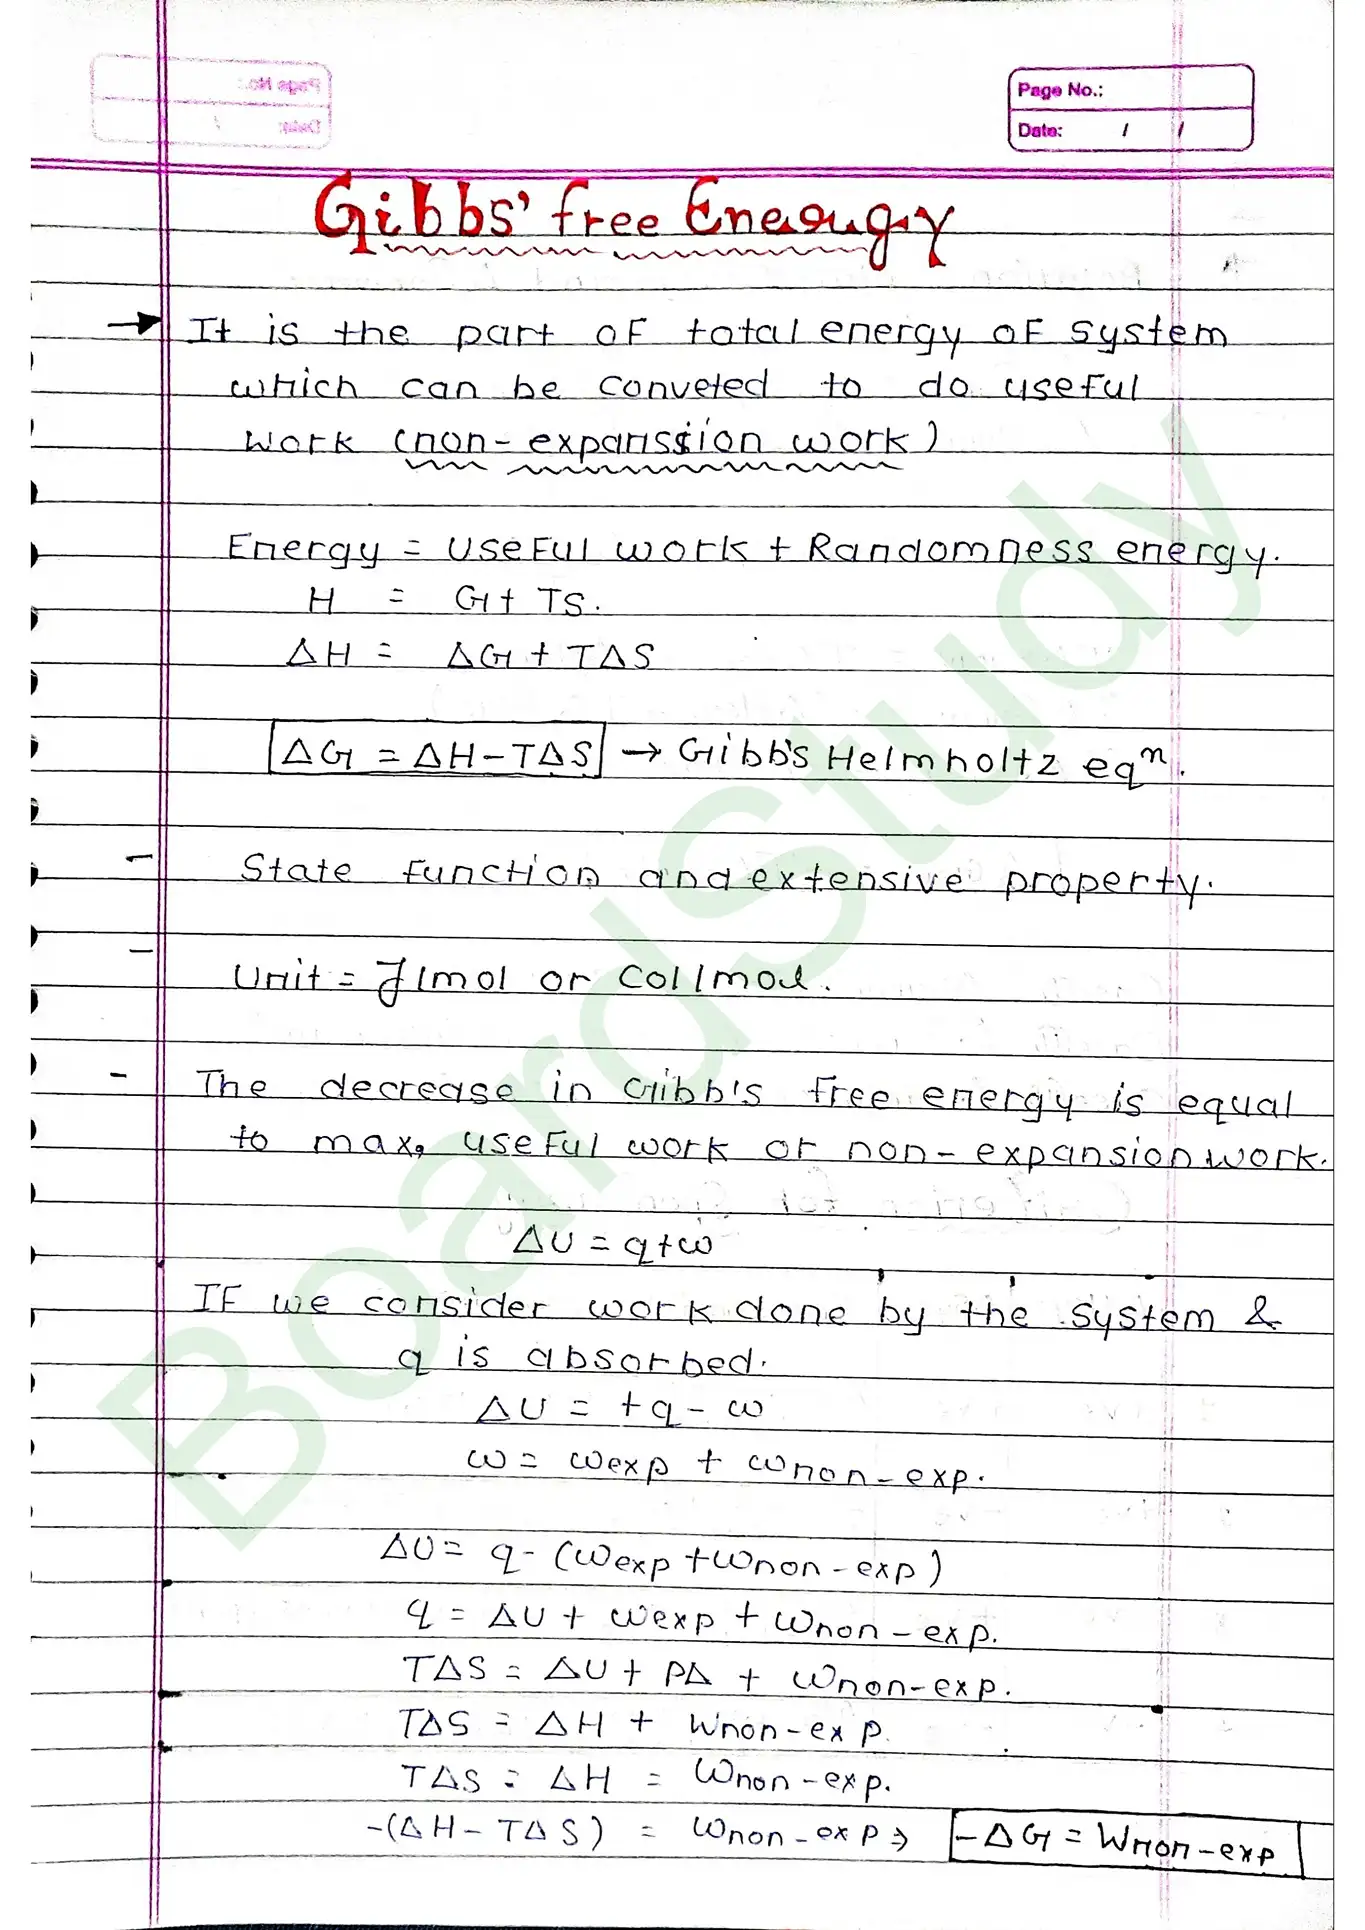 Page No.:
Date: / /
Gibbs' free Eneougy
→ It is the part of total energy of system
which can be conveted to do useful
work (non-expanssion work)
Energy = useful work + Randomness energy.
H = G + TS.
ΔH = ΔG + TΔS
ΔG = ΔH - TΔS → Gibb's Helmholtz eqⁿ.
- State function and extensive property.
- Unit = J/mol or Col/mol.
- The decrease in Gibb's free energy is equal
to max, useful work or non-expansion work.
ΔU = q+w
If we consider work done by the system &
q is absorbed.
ΔU = +q - w
w = wexp + wnon-exp.
ΔU = q - (wexp + wnon-exp)
q = ΔU + wexp + wnon-exp.
TΔS = ΔU + PΔ + wnon-exp.
TΔS = ΔH + wnon-exp.
TΔS = ΔH = wnon-exp.
-(ΔH - TΔS) = wnon-exp ⇒ -ΔG = Wnon-exp
BoardStudy